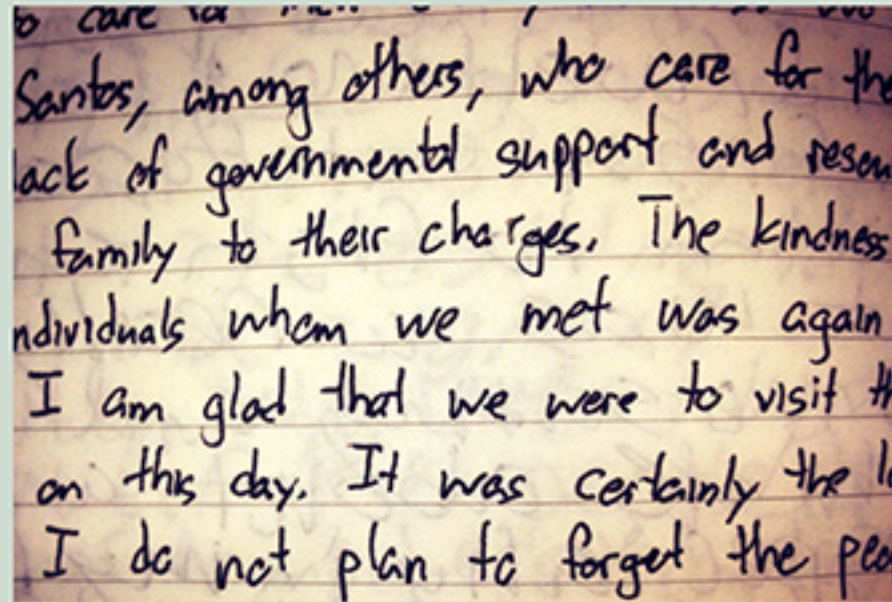 care
Santos, among others, who care for the
lack of governmental support and
family to their charges. The kindness
ndividuals whom we met was again
I am glad that we were to visit th
on this day. It was certainly the
I do not plan to forget the peo